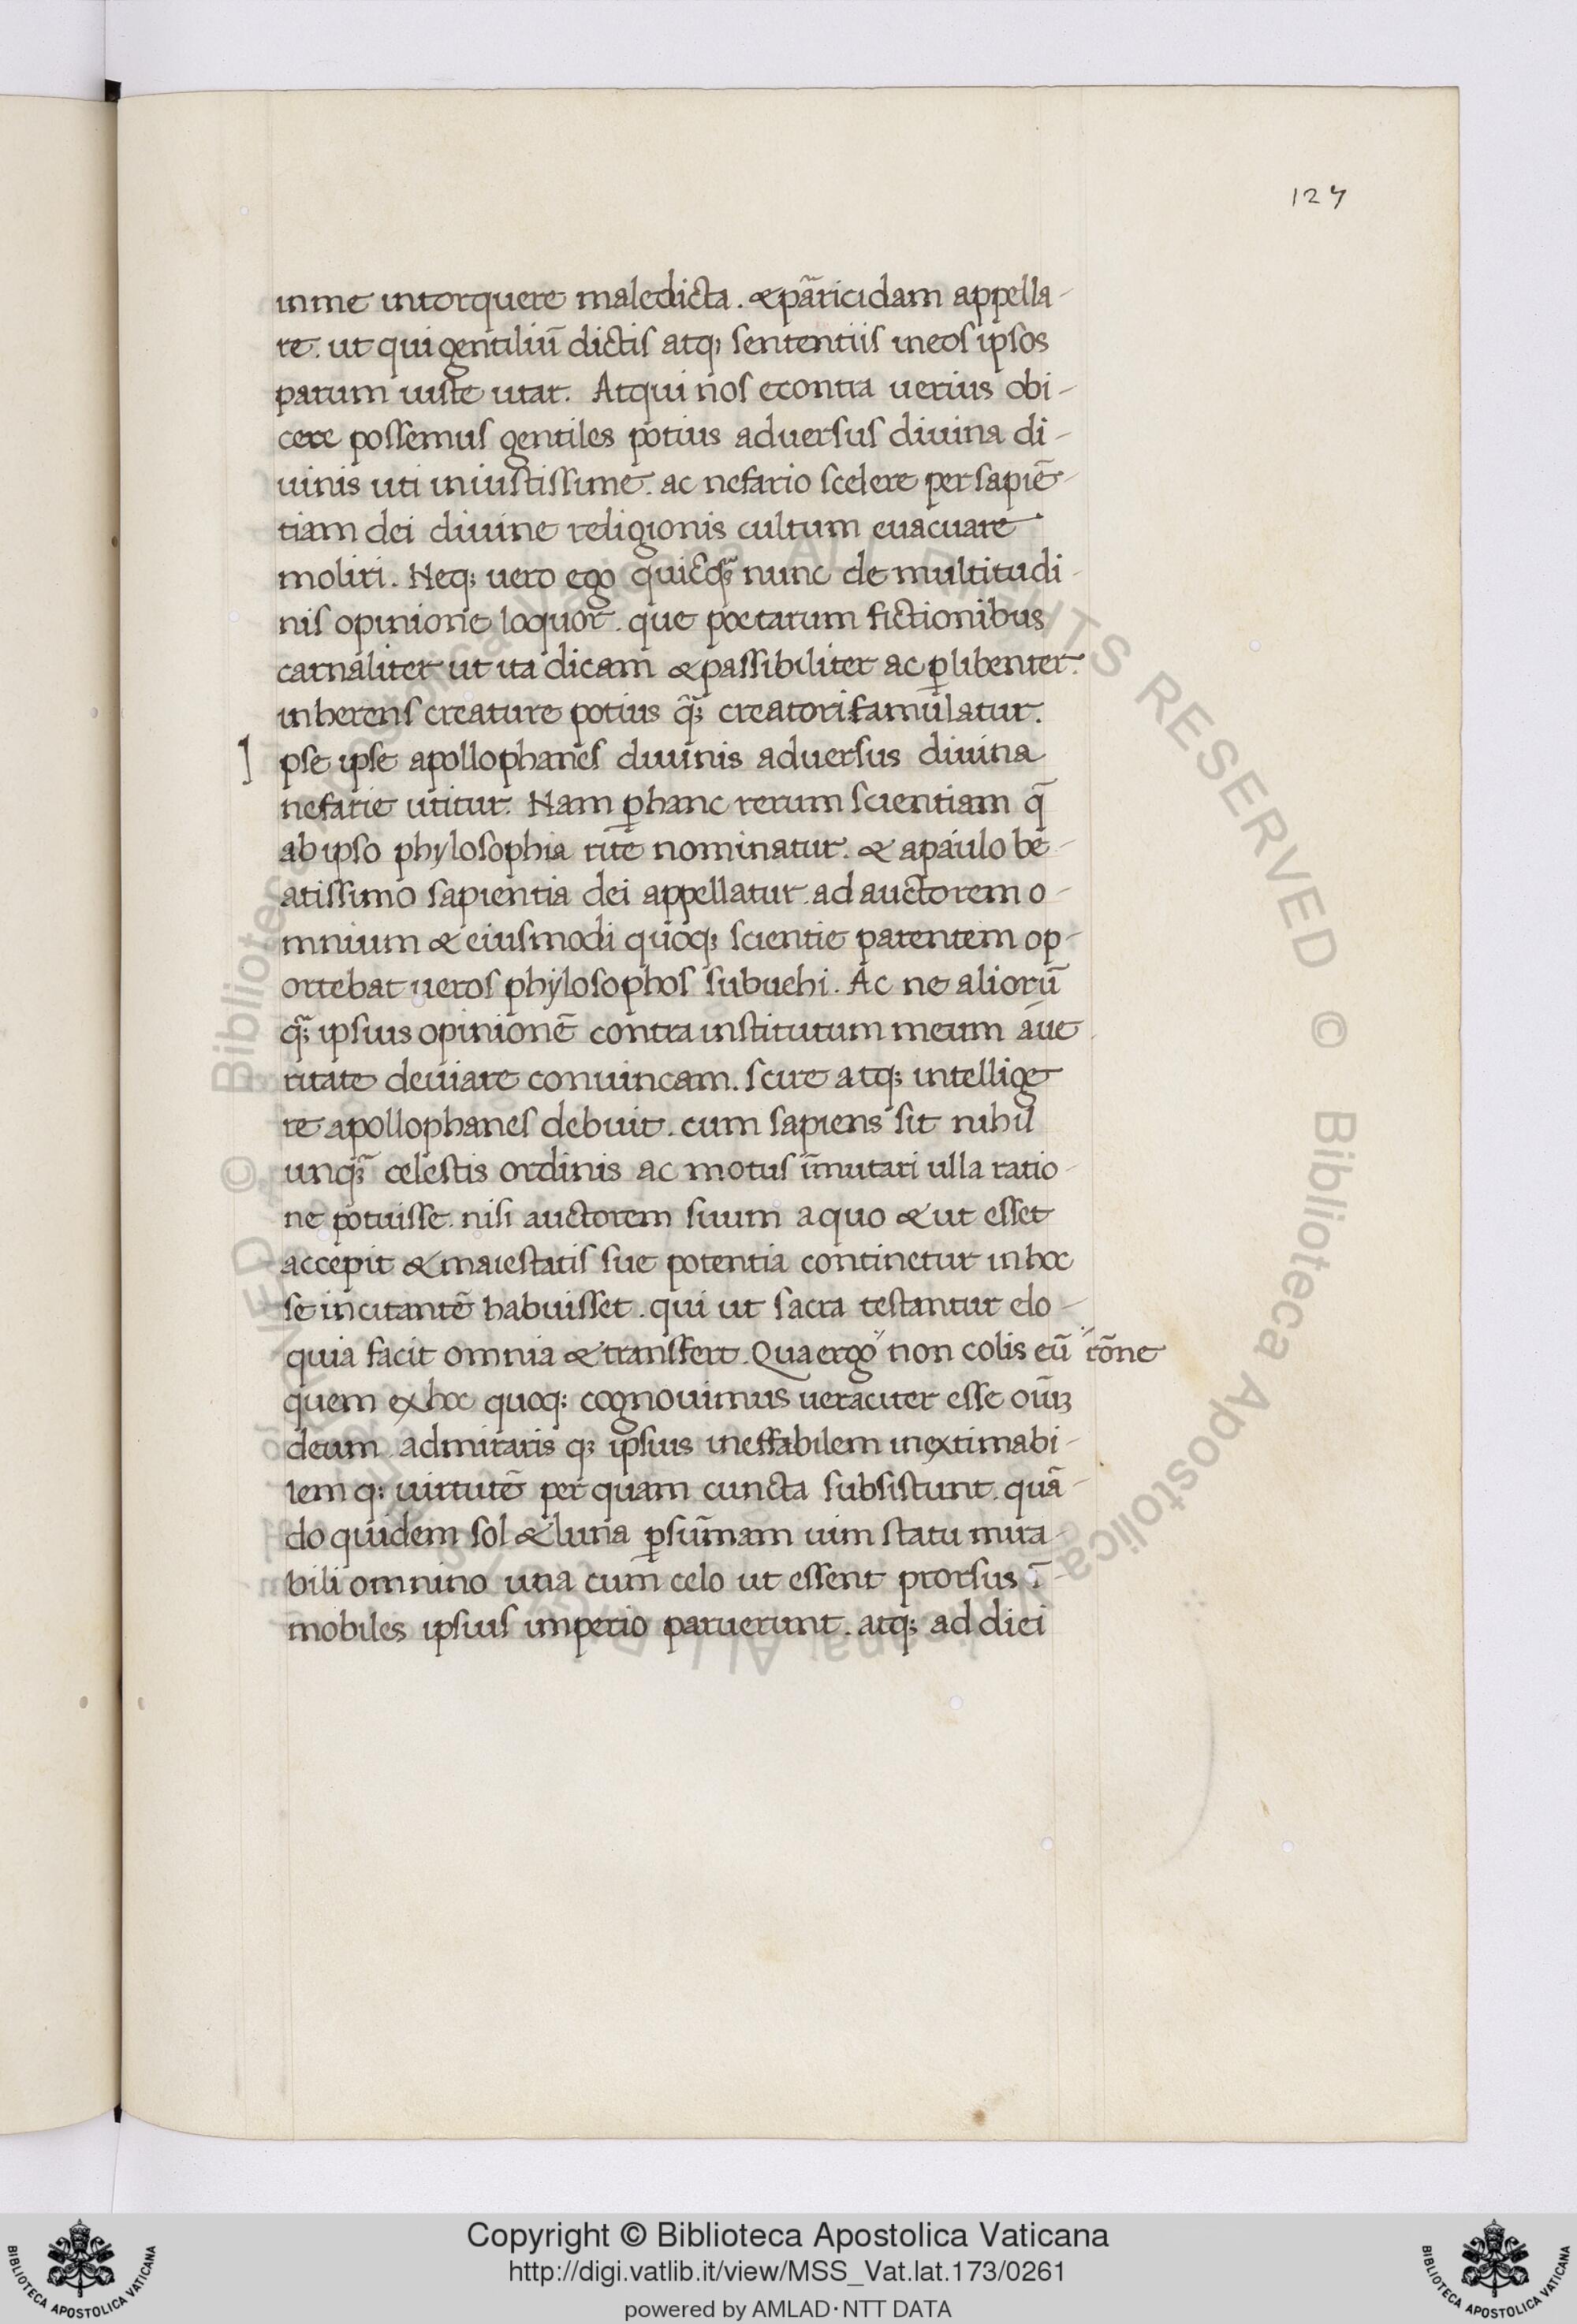 124
in me intorquere maledicta. & pa̅ricidam appella-
re. ut qui gentiliu̅ dictis atq; sententiis in eos ipsos
parum iuste utar. Atqui nos econtra uerius obi-
cere possemus gentiles potius aduersus diuina di-
uinis uti iniustissime. ac nefario scelere per sapie̅-
tiam dei diuine religionis cultum euacuare
moliri. Neq; uero ego quicq̅; nunc de multitudi-
nis opinione loquor. que poetarum fictionibus
carnaliter ut ita dicam & passibiliter ac ꝑlibenter
inherens creature potius q̅; creatori famulatur.
Ipse ipse apollophanes diuinis aduersus diuina
nefarie utitur. Nam ꝑ hanc rerum scientiam q̅
ab ipso phylosophia rite nominatur. & a paulo be-
atissimo sapientia dei appellatur. ad auctorem o-
mnium & eiusmodi quoq; scientie parentem op-
ortebat ueros phylosophos subuehi. Ac ne alioru̅
q̅; ipsius opinione̅ contra institutum meum a ue
ritate deuiare conuincam. scire atq; intellige
re apollophanes debuit. cum sapiens sit nihil
unq̅; celestis ordinis ac motus i̅mutari ulla ratio-
ne potuisse. nisi auctorem suum a quo & ut esset
accepit & maiestatis sue potentia continetur in hoc
se incitante̅ habuisset. qui ut sacra testantur elo-
quia facit omnia & transfert. Qua ergo〃 non colis eu̅ 〃ro̅ne
quem ex hoc quoq; cognouimus ueraciter esse oi̅uꝫ
deum. admiraris q; ipsius ineffabilem inextimabi-
lem q; uirtute̅ per quam cuncta subsistunt. qua̅-
do quidem sol & luna ꝑ su̅mam uim statu mira-
bili omnino una cum celo ut essent prorsus i̅-
mobiles ipsius imperio paruerunt. atq; ad diei
© Biblioteca Apostolica Vaticana, ALL RIGHTS RESERVED © Biblioteca Apostolica Vaticana, ALL RIGHTS RESERVED
Copyright © Biblioteca Apostolica Vaticana
http://digi.vatlib.it/view/MSS_Vat.lat.173/0261
powered by AMLAD·NTT DATA
BIBLIOTECA APOSTOLICA VATICANA
BIBLIOTECA APOSTOLICA VATICANA